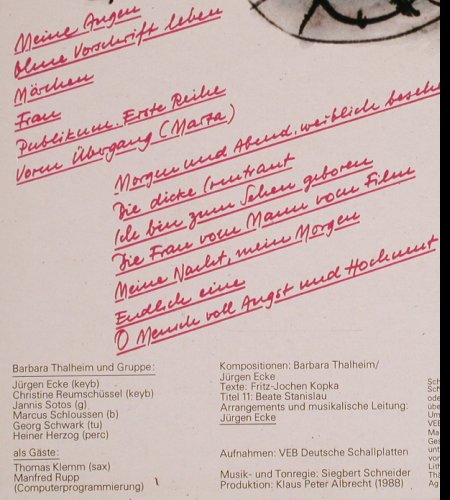 Meine Augen
Ohne Vorschrift leben
Märchen
Frau
Publikum. Erste Reihe
Vorm Übergang (Marta)
Morgen und Abend, weiblich
Die dicke Irmtraut
Ich bin zum Sehen geboren
Die Frau vom Mann vom Film
Meine Nacht, mein Morgen
Endlich eine
O Mensch voll Angst und Hochmut
Barbara Thalheim und Gruppe:
Jürgen Ecke (keyb)
Christine Reumschüssel (keyb)
Jannis Sotos (g)
Marcus Schloussen (b)
Georg Schwark (tu)
Heiner Herzog (perc)
als Gäste:
Thomas Klemm (sax)
Manfred Rupp
(Computerprogrammierung)
Kompositionen: Barbara Thalheim/
Jürgen Ecke
Texte: Fritz-Jochen Kopka
Titel 11: Beate Stanislau
Arrangements und musikalische Leitung:
Jürgen Ecke
Aufnahmen: VEB Deutsche Schallplatten
Musik- und Tonregie: Siegbert Schneider
Produktion: Klaus Peter Albrecht (1988)